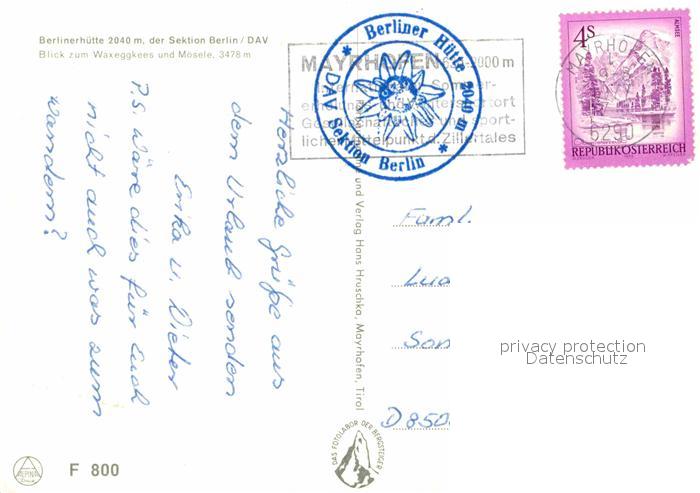 Berlinerhütte 2040 m, der Sektion Berlin / DAV
Blick zum Waxeggkees und Mösele, 3478 m
Berliner Hütte 2040 m
DAV Sektion Berlin
MAYRHOFEN 630-2000 m
Sommer-
licher Mittelpunkt d. Zillertales
MAYRHOFEN
6290
4S
ALMSEE
REPUBLIK ÖSTERREICH
Herzliche Grüße aus
dem Urlaub senden
Erika u. Dieter
P.S. Wäre dies für Euch
nicht auch was zum
wandern?
und Verlag Hans Hruschka, Mayrhofen, Tirol
Faml.
Lud
Son
D 850
privacy protection
Datenschutz
DAS FOTOLABOR DER BERGSTEIGER
ALPINA
F 800